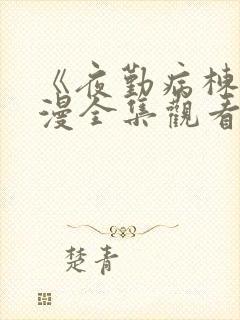 《夜勤病栋
漫全集觀看
楚青